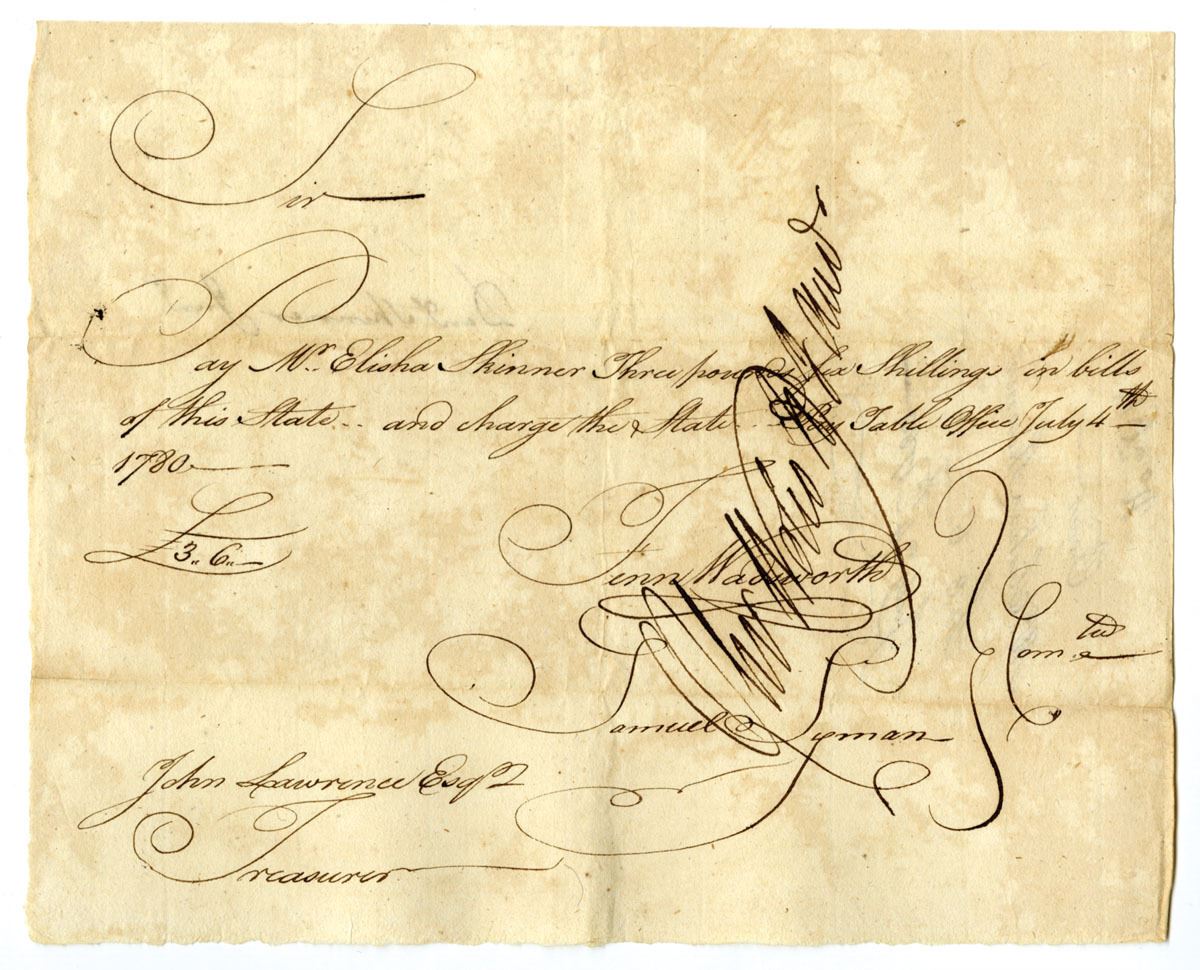 Sir
Pay Mr. Elisha Skinner Three pounds six Shillings in bills
of this State .. and charge the State .. Pay Table Office July 4th
1780
£3.. 6..
Fenn Wadsworth
Samuel Lyman
Comtee
John Lawrence Esqr
Treasurer